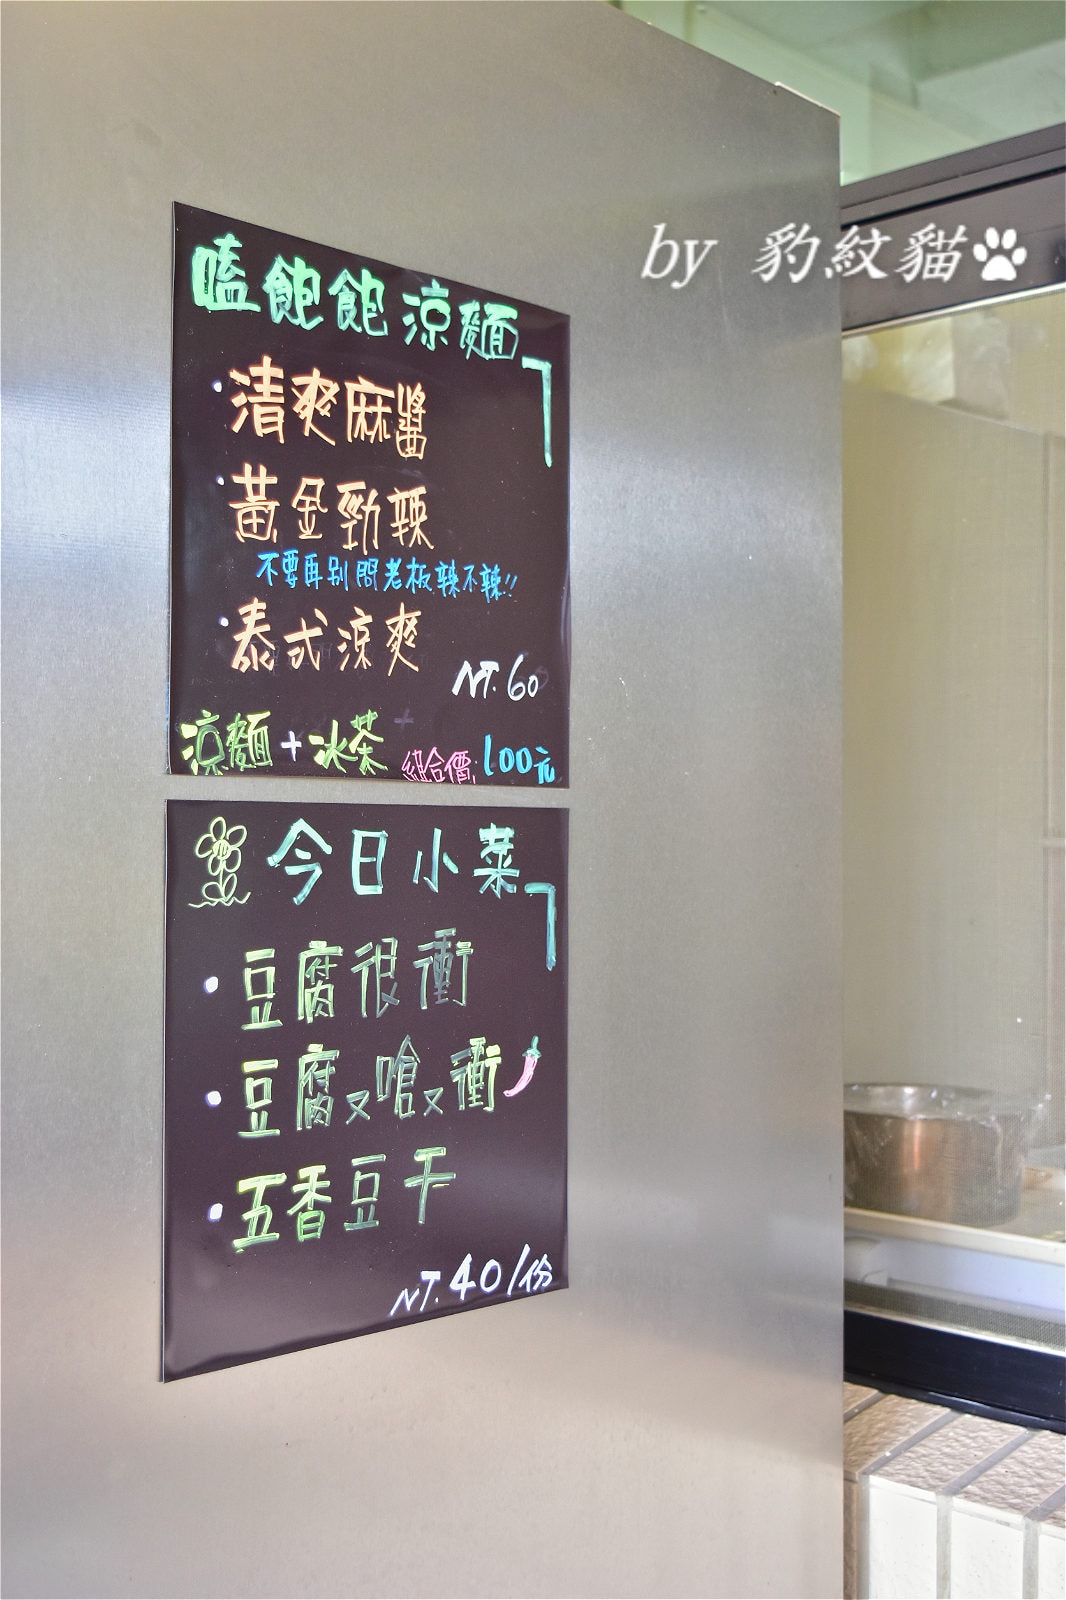 by 豹紋貓
嗑飽飽涼麵
・清爽麻醬
・黃金勁辣
不要再別問老板辣不辣!!
・泰式涼爽
NT.60
涼麵+冰茶 組合價 100元
今日小菜
・豆腐很衝
・豆腐又嗆又衝
・五香豆干
NT.40/份